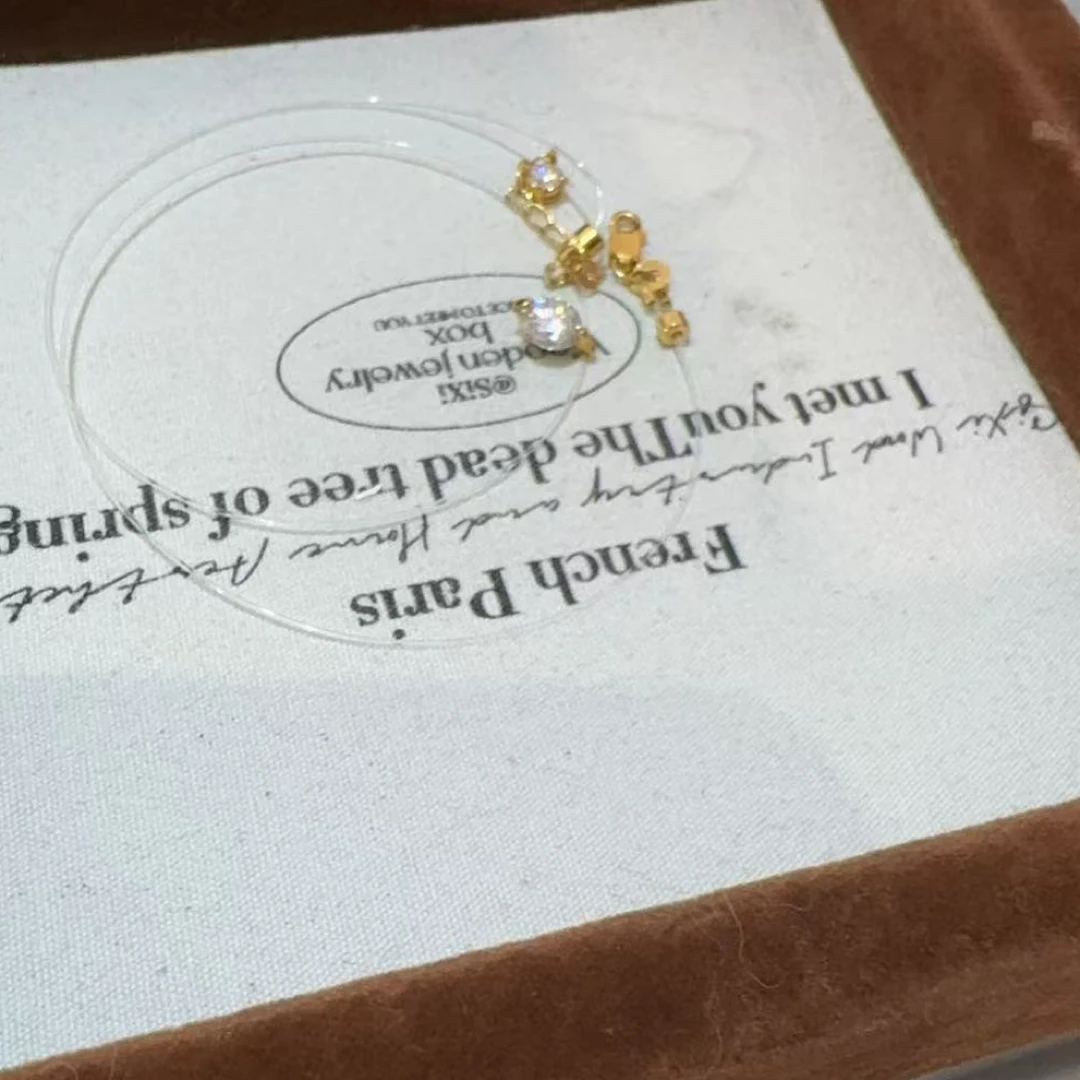 French Paris
SiXi Wood Industry and Home Aesthet
I met youThe dead tree of spring
@SiXi
Wooden jewelry
box
ICE TO MEET YOU